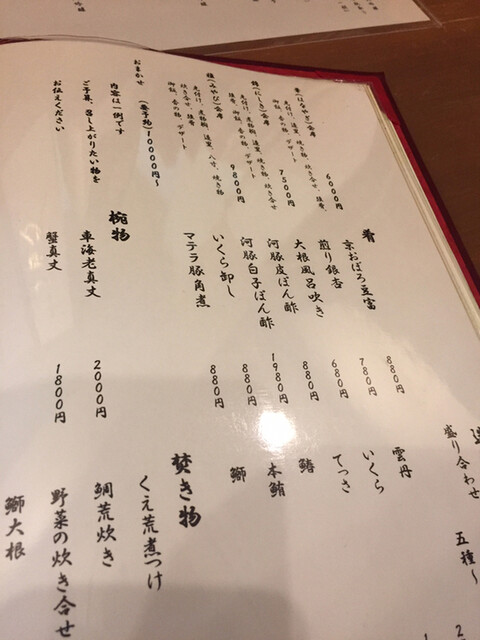 華(はなやぎ)会席 6000円
先付け、造里、焼き物、炊き合せ、强肴、
御飯、香の物、デザート
錦(にしき)会席 7500円
先付け、前菜、造里、焼き物、炊き合せ
御飯、香の物、デザート
雅(みやび)会席 9800円
先付け、造里、八寸、焼き物
炊き合せ、强肴
御飯、香の物、デザート
おまかせ (要予約)10000円〜
内容は一例です
ご予算、召し上がりたい物を
お伝えください
肴
京おぼろ豆富 880円
煎り銀杏 780円
大根風呂吹き 680円
河豚皮ぽん酢 880円
河豚白子ぽん酢 1980円
いくら卸し 880円
マテラ豚角煮 880円
椀物
車海老真丈 2000円
蟹真丈 1800円
盛り合わせ 五種〜
雲丹
いくら
てっさ
鰆
本鮪
鰤
焚き物
くえ荒煮つけ
鯛荒炊き
野菜の炊き合せ
鰤大根